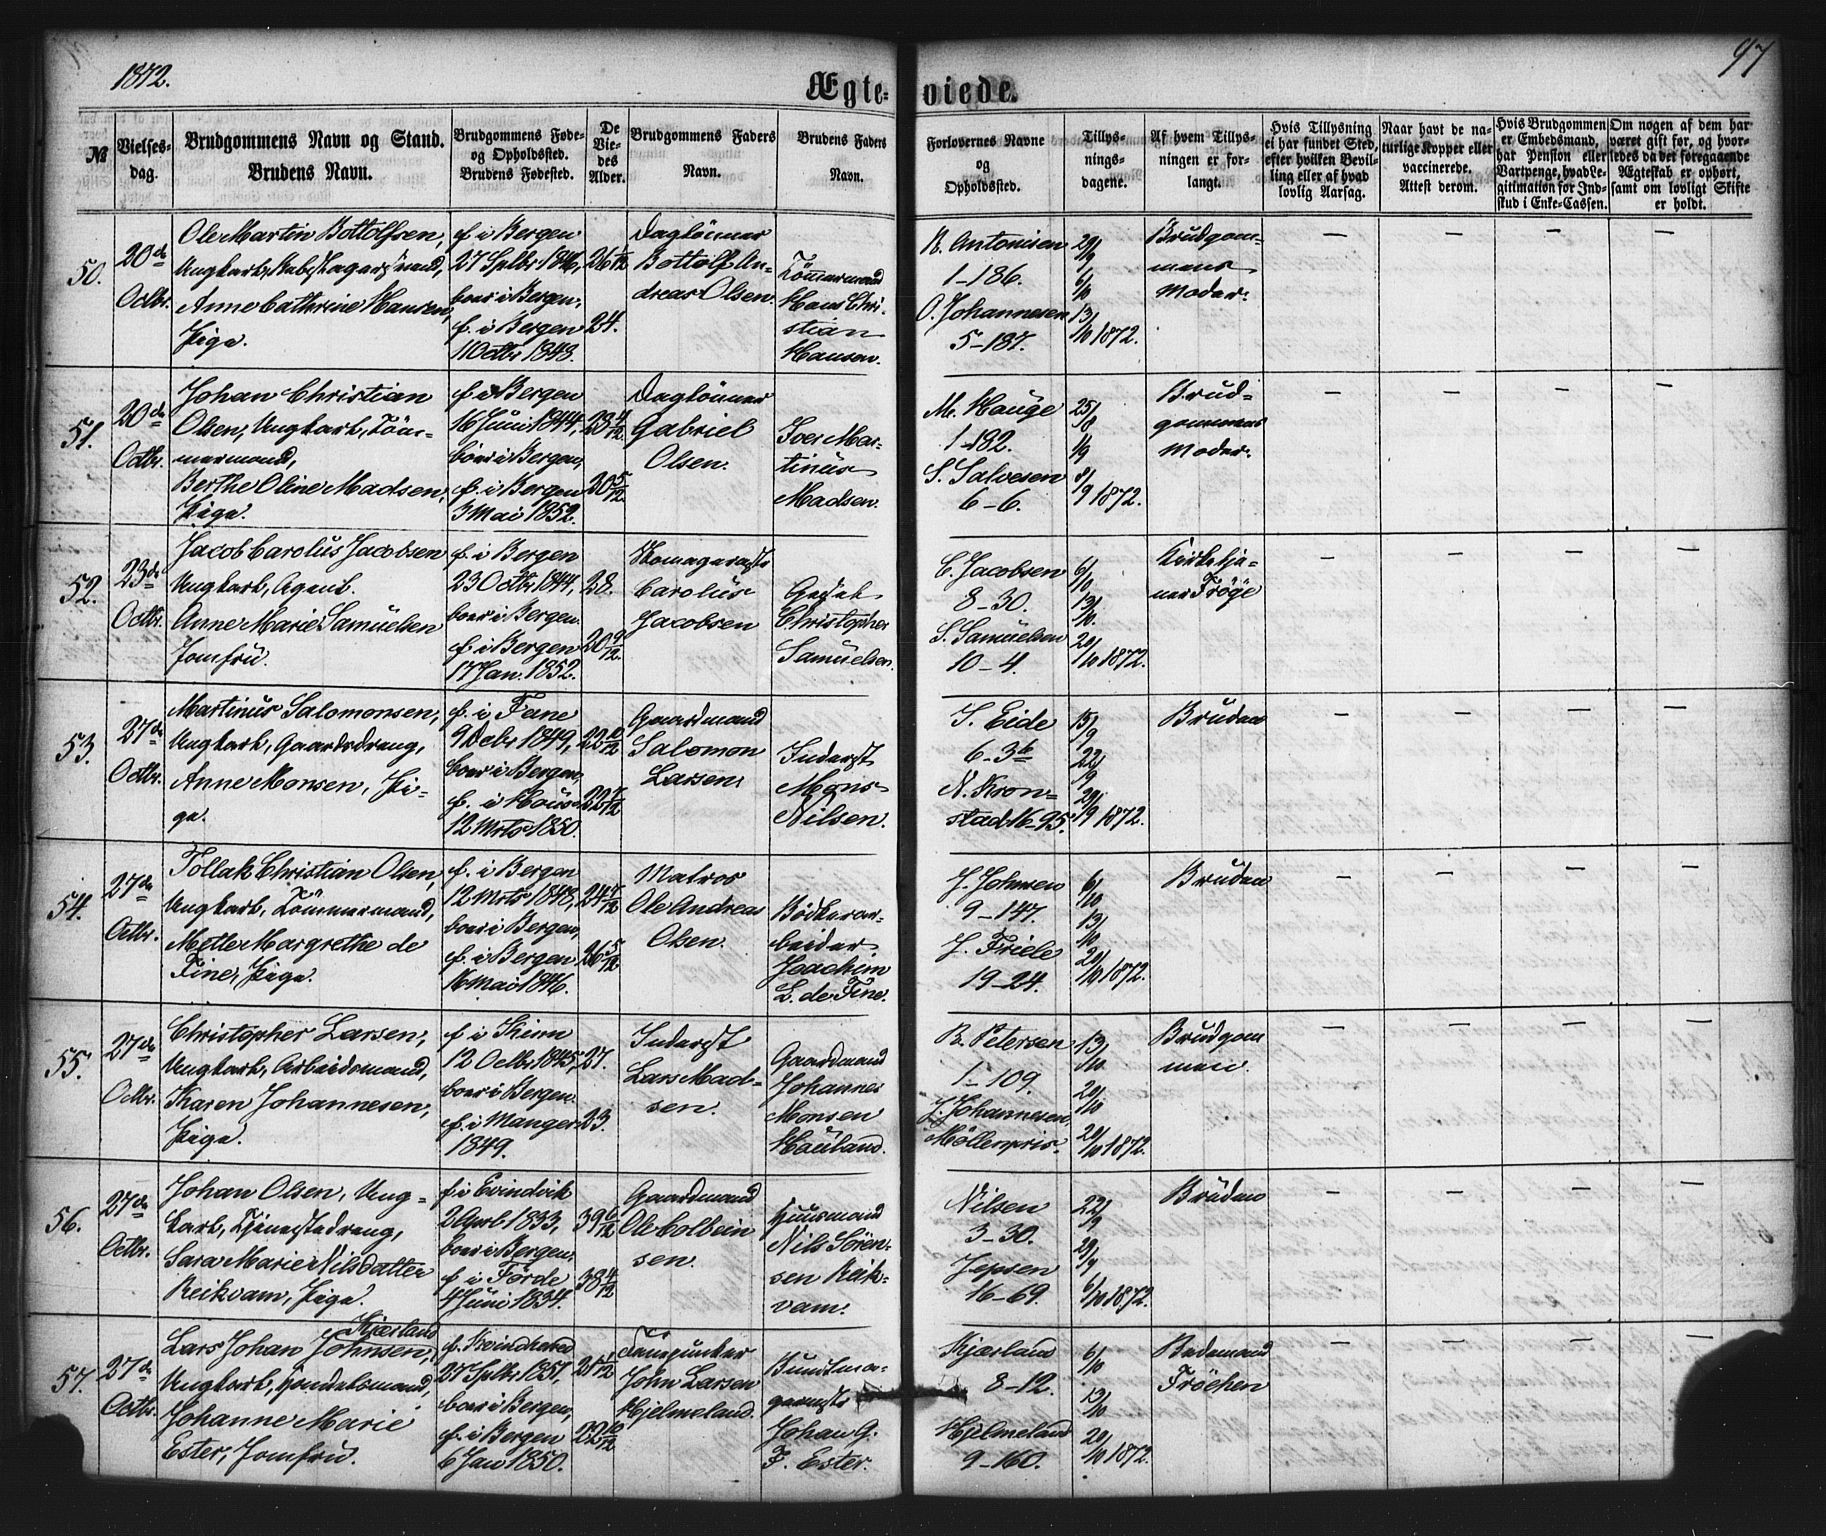 1872.
Ægte-
viede.
97
№
Vielses-
dag.
Brudgommens Navn og Stand.
Brudens Navn.
Brudgommens Føde-
og Opholdssted.
Brudens Fødested.
De
Vie-
des
Alder.
Brudgommens Faders
Navn.
Brudens Faders
Navn.
Forlovernes Navne
og
Opholdssted.
Tillys-
nings-
dagene.
Af hvem Tillys-
ningen er for-
langt.
Hvis Tillysning
ei har fundet Sted,
efter hvilken Bevil-
ling eller af hvad
lovlig Aarsag.
Naar havt de na-
turlige Kopper eller
vaccinerede.
Attest derom.
Hvis Brudgommen
er Embedsmand,
har Pension eller
Vartpenge, hvad Le-
gitimation for Ind-
skud i Enke-Cassen.
Om nogen af dem har
været gift før, og hvor-
ledes da det foregaaende
Ægteskab er ophørt,
samt om lovligt Skifte
er holdt.
50.
20de
Octbr.
Ole Martin Bottolfsen,
Ungkarl,
Anne Cathrine Hansen,
Pige.
f. i Bergen
27 Sptbr 1846,
boer i Bergen,
f. i Bergen
11 Octbr 1848.
26 1/12
24.
Daglönner
Bottolf An-
dreas Olsen.
Tömmermand
Hans Chri-
stian
Hansen.
R. Antonisen
1-186.
O. Johannesen
5-187.
29/9
6/10
13/10 1872.
Brudgom-
mens
Moder.
— — — —
51.
20de
Octbr.
Johan Christian
Olsen, Ungkarl, Töm-
mermand,
Berthe Oline Madsen,
Pige.
f. i Bergen
16 Juni 1844,
boer i Bergen,
f. i Bergen
3 Mai 1852.
28 4/12
20 5/12
Daglönner
Gabriel
Olsen.
Iver Mar-
tinus
Madsen.
M. Hauge
1-182.
S. Salvesen
6-6.
25/8
1/9
8/9 1872.
Brud-
gommens
Moder.
— — — —
52.
23de
Octbr.
Jacob Carolus Jacobsen
Ungkarl, Agent.
Anne Marie Samuelsen
Jomfru.
f. i Bergen
23 Octbr 1844,
boer i Bergen.
f. i Bergen
17 Jan. 1852.
28.
20 9/12
Carolus
Jacobsen
Christopher
Samuelsen.
C. Jacobsen
8-30.
S. Samuelsen
10-4.
6/10
13/10.
20/10 1872.
Kirketje-
ner Tröge
— — — —
53.
27de
Octbr.
Martinus Salomonsen,
Ungkarl, Gaardsdreng,
Anne Monsen, Pi-
ge.
f. i Fane
9 Debr 1849,
boer i Bergen,
f. i Haus
12 Mrts 1850.
22 10/12
22 7/12
Gaardmand
Salomon
Larsen,
Inderst
Mons
Nilsen.
S. Eide
6-3b
N. Kron-
stad 16-95.
15/9
22/9
29/9 1872.
Bruden
— — — —
54.
27de
Octbr.
Tollak Christian Olsen,
Ungkarl, Tömmermand,
Mette Margrethe de
Fine, Pige.
f. i Bergen
12 Mrts 1848,
boer i Bergen,
f. i Bergen
16 Mai 1846.
24 7/12
26 5/12
Matros
Ole Andreas
Olsen.
Bödkerar-
beider
Joachim
L. de Fine.
J. Johnsen
9-147.
J. Friele
19-24.
6/10
13/10
20/10 1872.
Bruden
— — — —
55.
27de
Octbr.
Christopher Larsen,
Ungkarl, Arbeidsmand,
Karen Johannesen,
Pige.
f. i Kinn
12 Octbr 1845,
boer i Bergen.
f. i Manger
1849.
27.
23.
Inderst
Lars Mad-
sen.
Gaardmand
Johannes
Monsen
Hauland.
B. Petersen
1-109.
J. Johannesen,
Möllenpris.
13/10
20/10
20/10 1872.
Brudgom
men.
— — — —
56.
27de
Octbr.
Johan Olsen, Ung-
karl, Tjenestedreng,
Sara Marie Nilsdatter
Reikvam, Pige.
f. i Evindvik
2 April 1833,
boer i Bergen,
f. i Förde
4 Juni 1834.
39 6/12
38 4/12
Gaardmand
Ole Colbein
sen.
Huusmand
Nils Sören-
sen Reik-
vam.
Nilsen
3-30.
Jepsen
16-69.
22/9
29/9
6/10 1872.
Bruden
— — — —
57.
27de
Octbr.
Kjærland
Lars Johan Johnsen,
Ungkarl, Handelsmand,
Johanne Marie
Ester, Jomfru.
f. Kvindherred
27 Sptbr 1851,
boer i Bergen,
f. i Bergen
6 Jan 1850.
21 1/12
22 10/12
John Larsen
Hjelmeland.
Buntma-
germstr
Johan G.
F. Ester.
Kjærland
8-12.
Hjelmeland
9-160.
6/10
13/10
20/10 1872.
Bedemand
Tröchen
— — — —